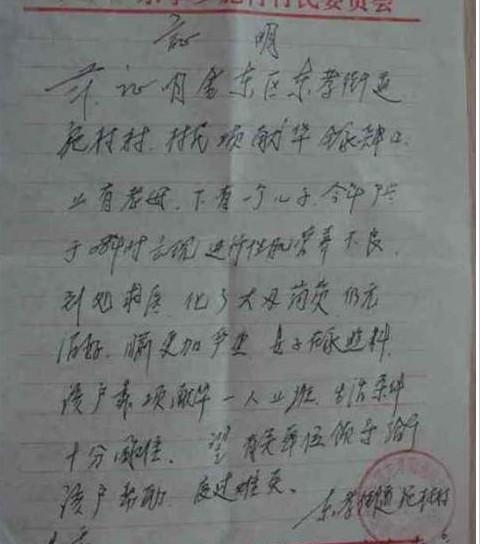 村民委员会
证 明
兹证明金东区东孝街道
施村村 村民项献华 全家肆口
上有老母、下有一个儿子、今年
于 时 发现进行性肌营养不良、
到处求医、化了大母药费 仍无
治好、病更加严重 妻子在家照料
该户靠项献华一人上班、生活条件
十分困难、望有关单位领导给予
该户帮助、度过难关。
东孝街道施村村